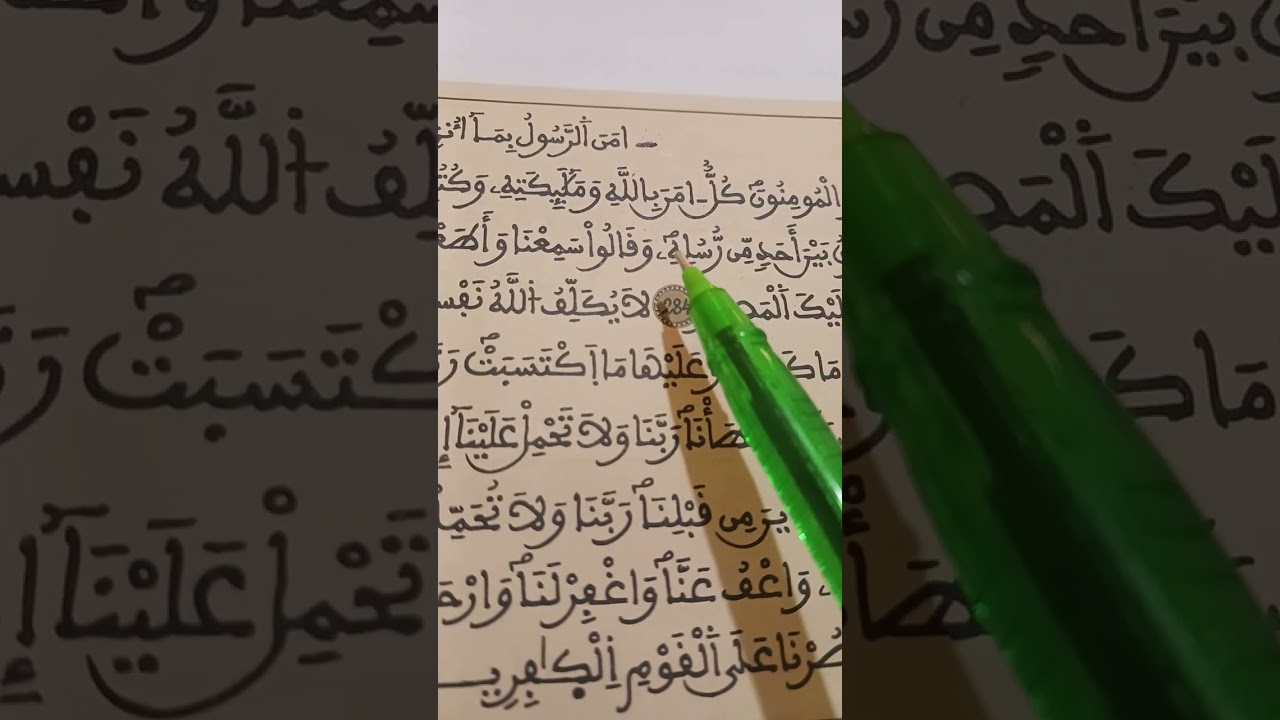 ـ امَنَ اَ۬لرَّسُولُ بِمَآ أُنزِ
الْمُومِنُونَۖ كُلٌّ ـ امَنَ بِاللَّهِ وَمَلَٰٓئِكَتِهِۦ وَكُتُ
بَيْنَ أَحَدٖ مِّن رُّسُلِهِۦۖ وَقَالُواْ سَمِعْنَا وَأَطَعْ
لَيْكَ اَ۬لْمَصِ 284 لَا يُكَلِّفُ اُ۬للَّهُ نَفْس
مَا كَ وَعَلَيْهَا مَا اَ۪كْتَسَبَتْۖ رَ
طَأْنَاۖ رَبَّنَا وَلَا تَحْمِلْ عَلَيْنَآ إِ
ينَ مِن قَبْلِنَاۖ رَبَّنَا وَلَا تُحَمِّ
وَاعْفُ عَنَّاۖ وَاغْفِرْ لَنَاۖ وَارْحَ
صُرْنَا عَلَى اَ۬لْقَوْمِ اِ۬لْكٰ۪فِرِي